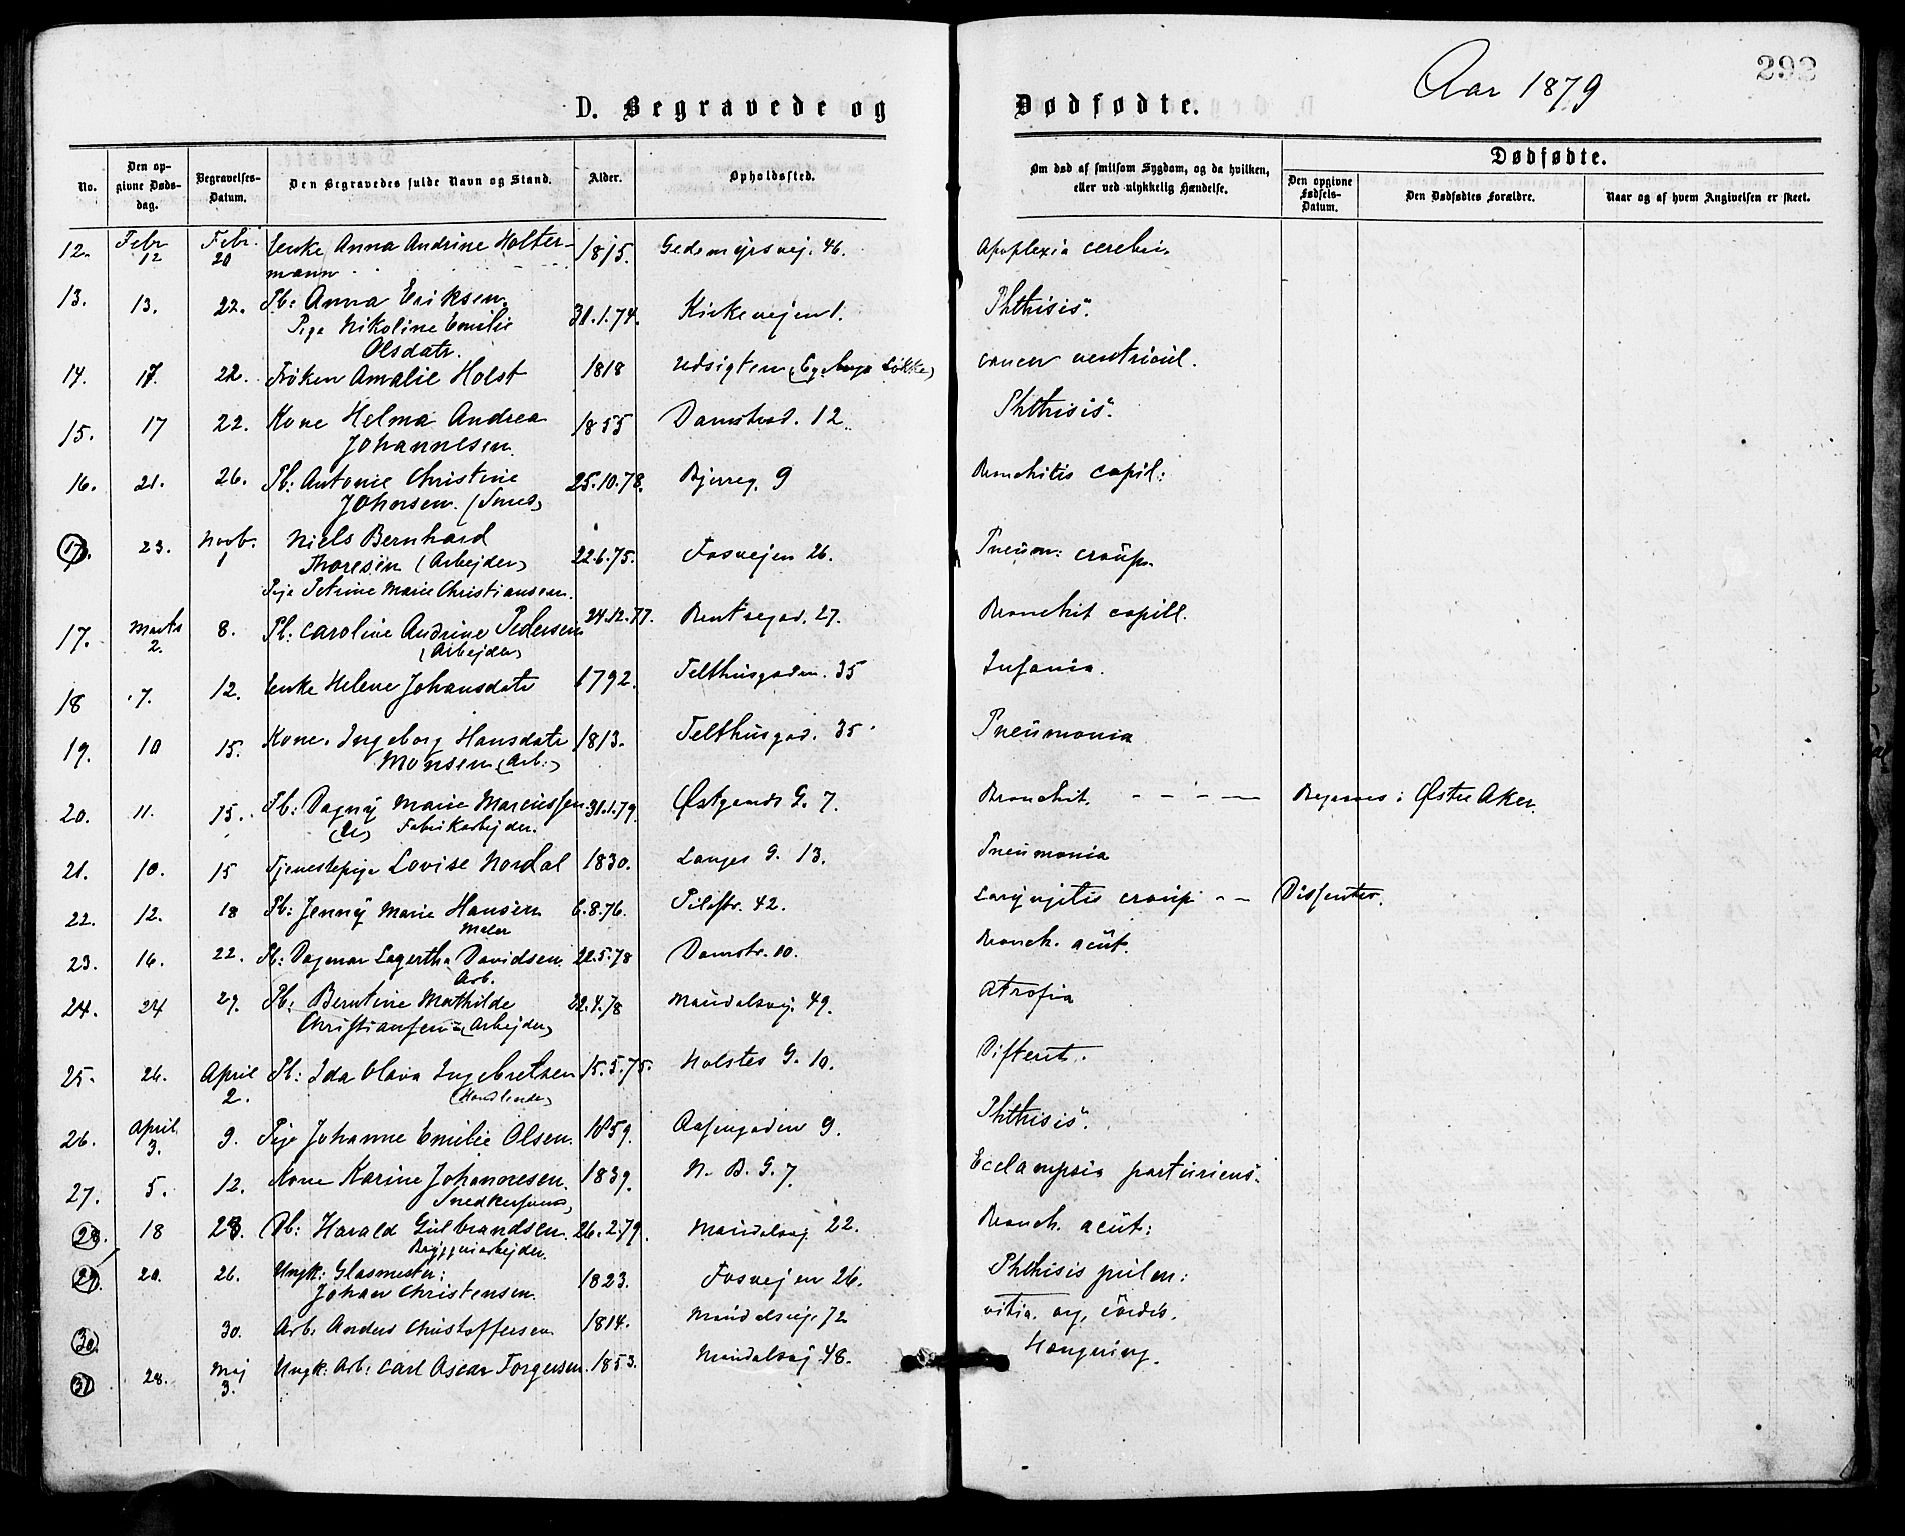 292
Aar 1879
D. Begravede og Dødfødte.
No. Den opgivne Dødsdag. Begravelses-Datum. Den Begravedes fulde Navn og Stand. Alder. Opholdssted. Om død af smitsom Sygdom, og da hvilken, eller ved ulykkelig Hændelse. Dødfødte.
Den opgivne Fødsels-Datum. Den Dødfødtes Forældre. Naar og af hvem Angivelsen er skeet.
12. Febr 12 Febr. 20 Enke Anna Andrine Holter- 1815. Gedemyrsvej. 46. Apoplexia cerebri.
mann
13. 13. 22. Pb: Anna Eriksen. 31.1.74. Kirkevejen 1. Phthisis.
Pige Nikoline Emilie
Olsdatr.
14. 17. 22. Frøken Amalie Holst 1818 Udsigten (Egebergs Løkke) cancer ventricul.
15. 17 22. Kone Helma Andrea 1855 Damstrad. 12. Phthisis.
Johannesen.
16. 21. 26. Pb: Antonie Christine 25.10.78. Bjerreg. 9 Bronchitis capil:
Johnsen. (Smed)
17. 23. Novb. 1 Niels Bernhard 22.6.75. Fosvejen 26. Pneum: croup.
Thoresen (Arbejder)
Pige Petrine Marie Christiansen.
17. Marts 2. 8. Pb: Caroline Andrine Pedersen 24.12.77. Bentsegad. 27. Bronchit capill.
(Arbejder)
18 7. 12. Enke Helene Johansdatr 1792. Telthusgaden. 35 Insania.
19. 10 15. Kone. Ingeborg Hansdatr 1813. Telthusgad. 35 Pneumonia
Monsen (Arb:)
20. 11. 15. Pb: Dagny Marie Marcussen 31.1.79. Østgaards G. 7. Bronchit. - - - - Begraves i Østre Aker.
(U) Fabrikarbejder.
21. 10. 15 Tjenestepige Lovise Nordal 1830. Langes G. 13. Pneumonia
22. 12. 18 Pb: Jenny Marie Hansen 6.8.76. Pilestr. 42. Laryngitis croup - - Dissenter.
Maler
23. 16. 22. Pb: Dagmar Lagertha Davidsen. 22.5.78 Damstr. 10. Bronch. acut.
Arb.
24. 24 29. Pb: Berntine Mathilde 22.4.78 Maridalsvej. 49. Atrofia
Christiansen (Arbejder)
25. 26. April 2. Pb: Ida Olava Ingebretsen 15.5.75. Holstes G. 10. Difterit.
(Handlende)
26. April 3. 9. Pige Johanne Emilie Olsen. 1859. Aasengaden 9. Phthisis.
27. 5. 12. Kone Karine Johannesen. 1839. N. B. G. 7. Ecclampsia parturiens.
Snedkersvend
28. 18 23. Db: Harald Gulbrandsen. 26.2.79. Maridalsvej 22. Bronch. acut:
Bryggeriarbejder.
29. 20. 26. Ungk: Glasmester: 1823. Fosvejen 26. Phthisis pulm:
Johan Christensen.
30. 30. Arb. Anders Christoffersen 1814. Maridalsvej. 72 vitia. org. cordis.
31. 28. Maj 3. Ungk: Arb: Carl Oscar Torgersen. 1853. Maridalsvej 48. Hængning.